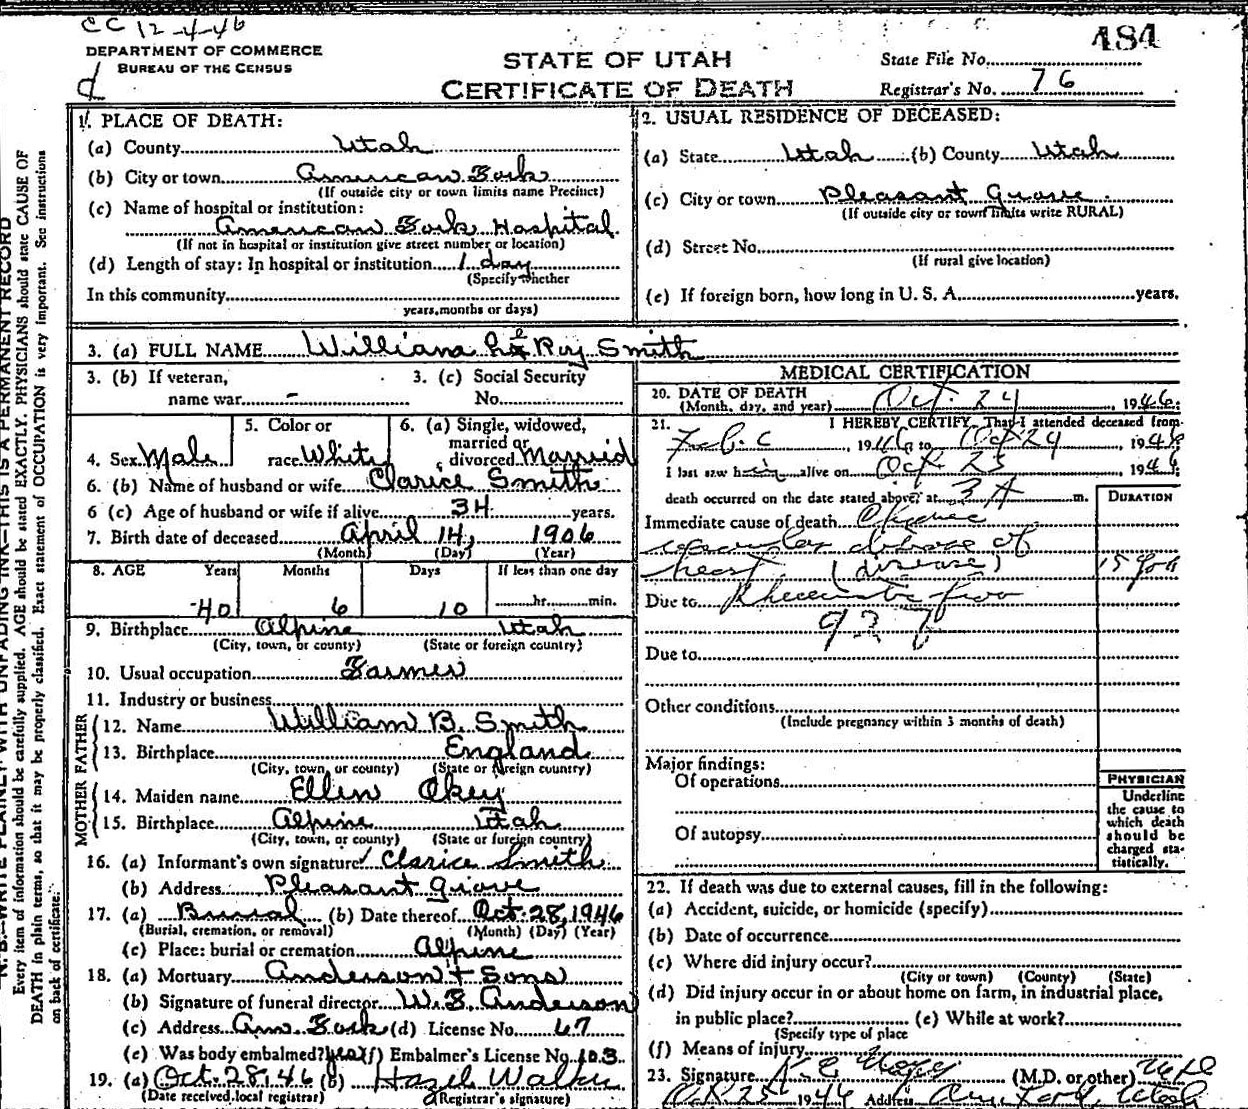 CC 12-4-46
DEPARTMENT OF COMMERCE
BUREAU OF THE CENSUS
STATE OF UTAH
CERTIFICATE OF DEATH
484
State File No.
Registrar's No. 76
N. B.—WRITE PLAINLY WITH UNFADING INK—THIS IS A PERMANENT RECORD
Every item of information should be carefully supplied. AGE should be stated EXACTLY. PHYSICIANS should state CAUSE OF
DEATH in plain terms, so that it may be properly classified. Exact statement of OCCUPATION is very important. See instructions
on back of certificate.
1. PLACE OF DEATH:
(a) County Utah
(b) City or town American Fork
(If outside city or town limits name Precinct)
(c) Name of hospital or institution:
American Fork Hospital
(If not in hospital or institution give street number or location)
(d) Length of stay: In hospital or institution 1 day
(Specify whether
In this community
years, months or days)
2. USUAL RESIDENCE OF DECEASED:
(a) State Utah (b) County Utah
(c) City or town Pleasant Grove
(If outside city or town limits write RURAL)
(d) Street No.
(If rural give location)
(e) If foreign born, how long in U. S. A. years.
3. (a) FULL NAME William Roy Smith
3. (b) If veteran, name war -
3. (c) Social Security No.
4. Sex Male
5. Color or race White
6. (a) Single, widowed, married or divorced Married
6. (b) Name of husband or wife Clarice Smith
6 (c) Age of husband or wife if alive 34 years.
7. Birth date of deceased April 14, 1906
(Month) (Day) (Year)
8. AGE Years Months Days If less than one day
40 6 10 hr. min.
9. Birthplace Alpine Utah
(City, town, or county) (State or foreign country)
10. Usual occupation Farmer
11. Industry or business
FATHER
12. Name William B. Smith
13. Birthplace England
(City, town, or county) (State or foreign country)
MOTHER
14. Maiden name Ellen Okey
15. Birthplace Alpine Utah
(City, town, or county) (State or foreign country)
16. (a) Informant's own signature Clarice Smith
(b) Address Pleasant Grove
17. (a) Burial (b) Date thereof Oct. 28, 1946
(Burial, cremation, or removal) (Month) (Day) (Year)
(c) Place: burial or cremation Alpine
18. (a) Mortuary Anderson + Sons
(b) Signature of funeral director W. E. Anderson
(c) Address Am. Fork (d) License No. 67
(e) Was body embalmed? yes (f) Embalmer's License No. 103
19. (a) Oct. 28, 46 (b) Hazel Walker
(Date received local registrar) (Registrar's signature)
MEDICAL CERTIFICATION
20. DATE OF DEATH
(Month, day, and year) Oct. 24, 1946
21. I HEREBY CERTIFY, That I attended deceased from
1946 to Oct 24, 1946
I last saw him alive on Oct. 23 1946
death occurred on the date stated above, at 3 A m.
DURATION
Immediate cause of death Chronic
disease of
heart (disease) 15 yrs
Due to Rheumatic
Due to
Other conditions
(Include pregnancy within 3 months of death)
Major findings:
Of operations
Of autopsy
PHYSICIAN
Underline
the cause to
which death
should be
charged sta-
tistically.
22. If death was due to external causes, fill in the following:
(a) Accident, suicide, or homicide (specify)
(b) Date of occurrence
(c) Where did injury occur?
(City or town) (County) (State)
(d) Did injury occur in or about home on farm, in industrial place,
in public place? (e) While at work?
(Specify type of place
(f) Means of injury
23. Signature (M.D. or other)
Oct. 25 1946 Address Am. Fork, Utah